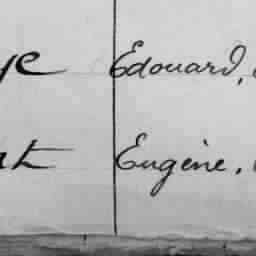 ye Edouard,
nt Eugène,